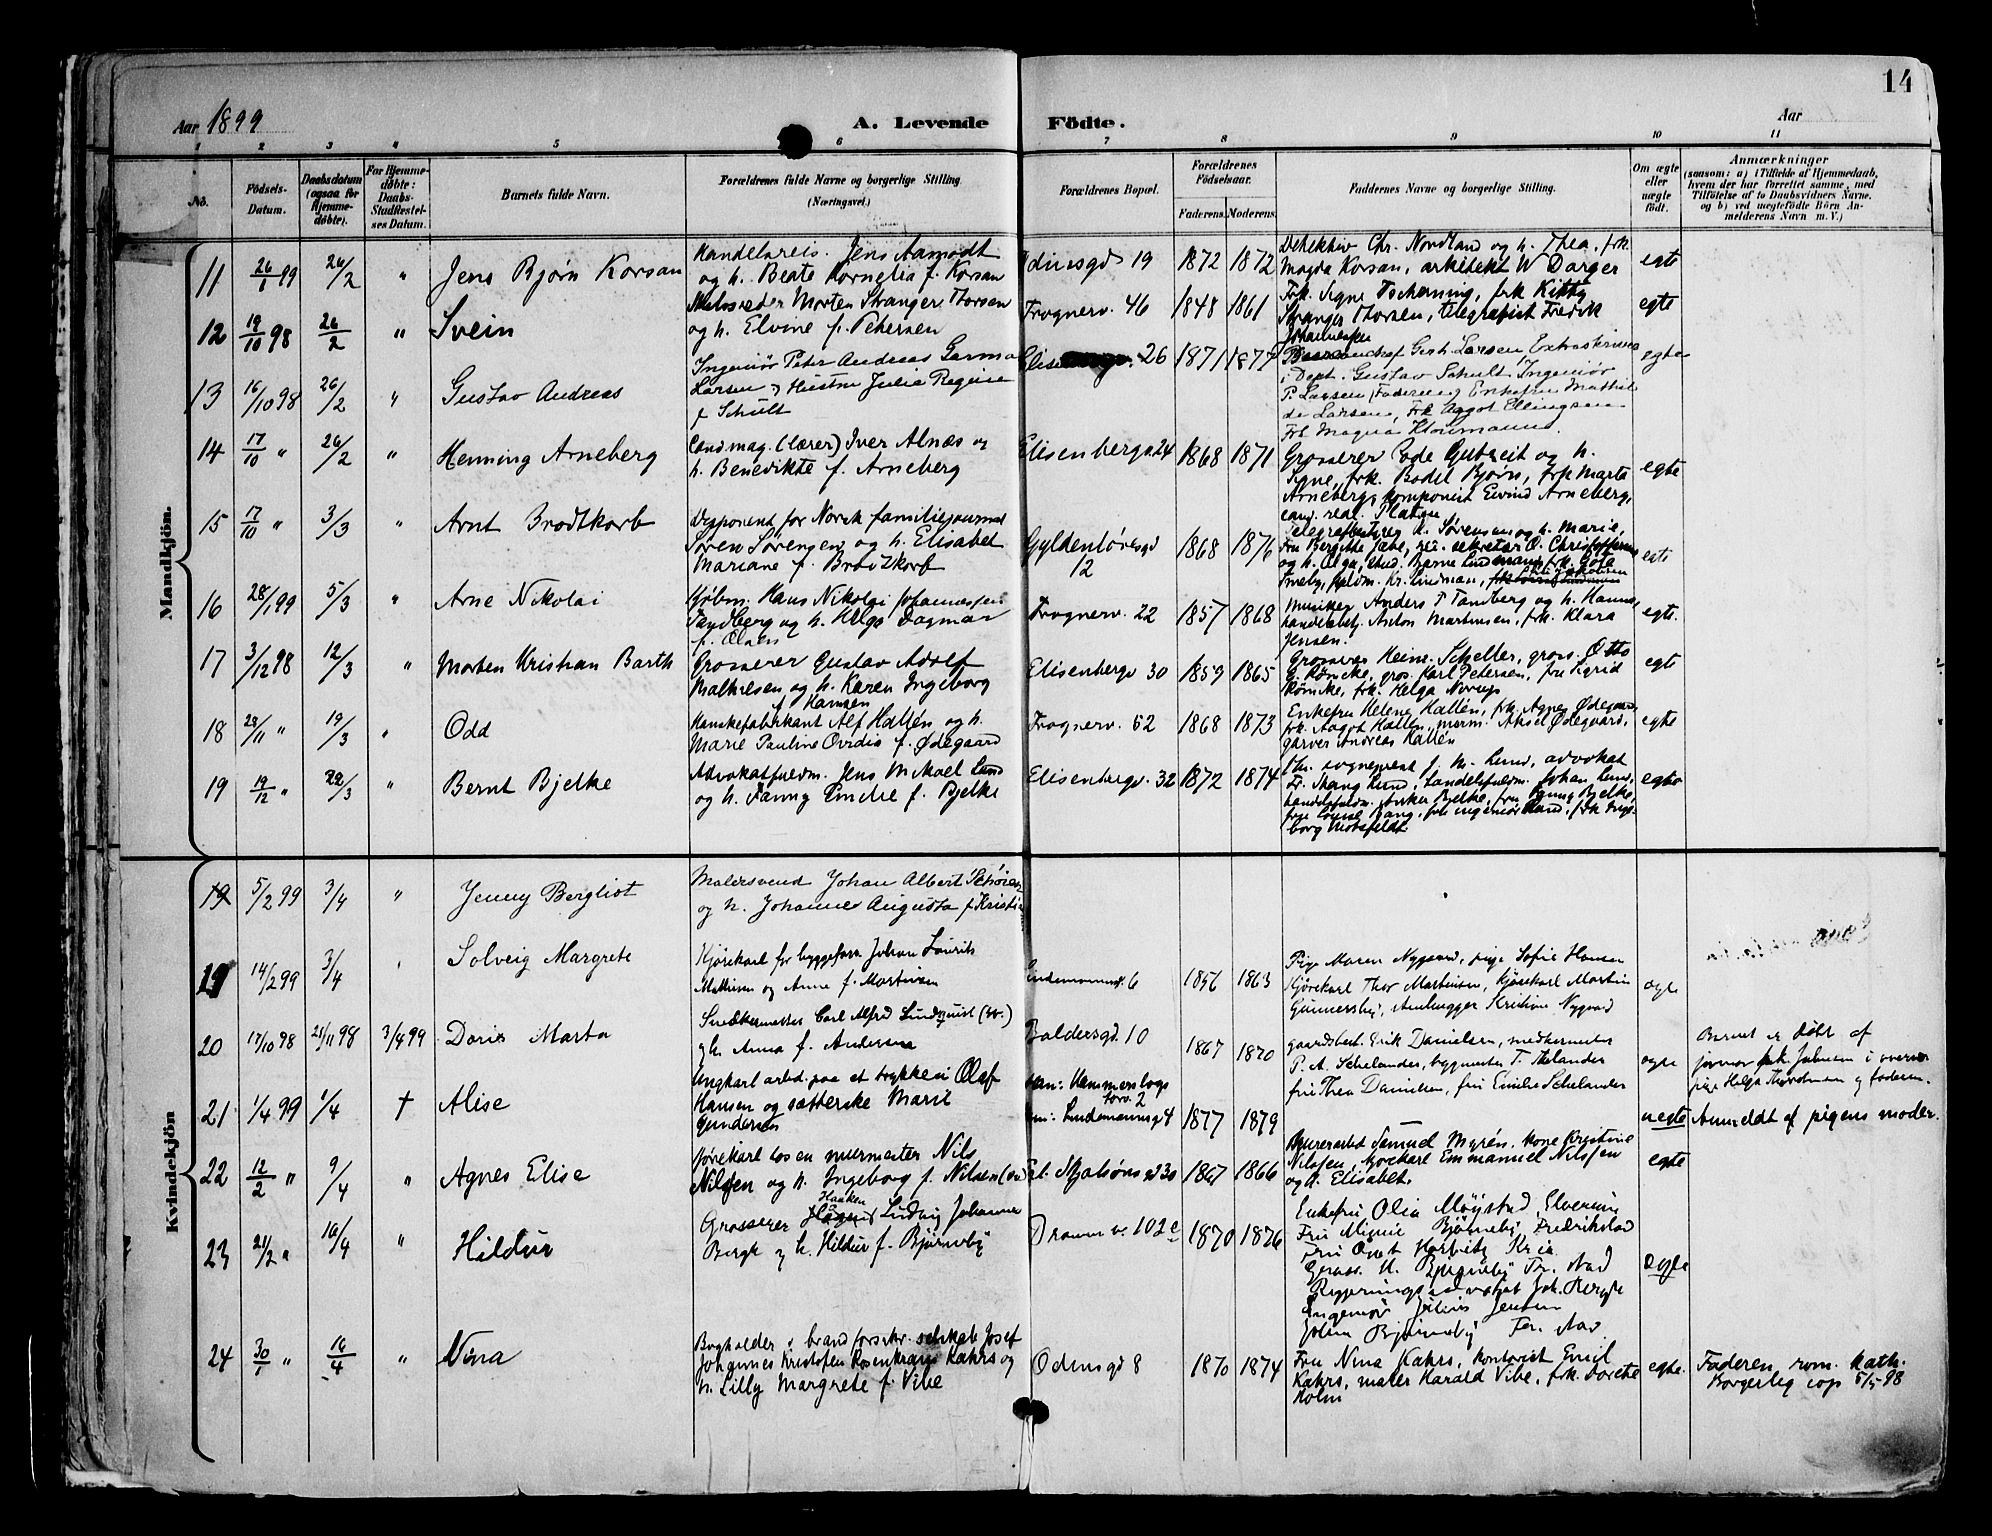 14
Aar 1899
A. Levende Födte.
Aar
1 2 3 4 5 6 7 8 9 10 11
No.
Födsels-Datum.
Daabsdatum (ogsaa for Hjemmedöbte).
For Hjemmedöbte: Daabs-Stadfæstelses Datum.
Barnets fulde Navn.
Forældrenes fulde Navne og borgerlige Stilling. (Næringsvei.)
Forældrenes Bopæl.
Forældrenes Födselsaar.
Faderens. Moderens.
Faddernes Navne og borgerlige Stilling.
Om ægte eller uægte födt.
Anmærkninger
(saasom: a) i Tilfælde af Hjemmedaab, hvem der har forrettet samme, med Tilföielse af to Daabsvidners Navne, og b) ved uægtefödte Börn Anmelderens Navn m. V.)
Mandkjön.
11 26/1 99 26/2 " Jens Bjørn Korsan
Handelsreis. Jens Aamodt
og h. Beate Kornelia f. Korsan
19 1872 1872
Detektiv Chr. Nordland og h. Thea, frk.
Magda Korsan, arkitekt W Darger
egte
12 19/10 98 26/2 " Svein
Morten Stranger Thorsen
og h. Elvine f. Petersen
Frognerv. 46 1848 1861
Frk. Signe Tscherning, frk Kitty
Stranger Thorsen, telegrafist Fredrik
Johannesen
egte
13 16/10 98 26/2 " Gustav Andreas
Ingeniør Peter Andreas Garma
Larsen og Hustru Julia Regine
f Schult
26 1871 1877
Gerh Larsen,
i Dept. Gustav Schult Ingeniør
P. Larsen (Faderen) Enkefru Mathil
de Larsen, Frk Aagot Ellingsen
Frk Magna
egte
14 17/10 " 26/2 " Henning Arneberg
Cand mag. (lærer) Iver Alnæs og
h. Benedikte f. Arneberg
Elisenbergv 24 1868 1871
Grosserer Ode Gutzeit og h.
Signe, frk. Bodil Bjørn, frk Marta
Arneberg, komponist Eivind Arneberg,
cand. real. Platou
egte
15 17/10 " 3/3 " Arnt Brodtkorb
Disponent for Norsk familiejournal
Søren Sørensen og h. Elisabet
Mariane f. Brodtkorb
Gyldenløvesgd
12
1868 1876
Sørensen og h. Marie,
Fru Bergitte sekretær O. Christoffersen
og h. Olga, stud. Bjarne Lindman, frk.
Kr. Lindman,
egte
16 28/1 99 5/3 " Arne Nikolai
Kjøbm. Hans Nikolai Johannessen
Tandberg og h. Helga Dagmar
f. Olsen
Frognerv. 22 1857 1868
Musiker Anders T Tandberg og h. Hanna,
Anton Martinsen, frk. Klara
Jensen.
egte.
17 3/12 98 12/3 " Morten Kristian Barth
Grosserer Gustav Adolf
Mathiesen og h. Karen Ingeborg
f Hansen
Elisenbergv 30 1859 1865
Grosserer Heinr. Scheller, gross. Otto
G. Römcke, gros. Karl Petersen, fru Sigrid
Römcke, frk. Helga Norup
egte
18 28/11 " 19/3 " Odd
Hanskefabrikant Alf Hallén og h.
Marie Pauline Ovidia f. Ødegaard
Frognerv. 62 1868 1873
Enkefru Helene Hallén, frk. Agnes Ødegaard
frk. Aagot Hallén, Aksel Ødegaard,
garver Andreas Hallén
egte
19 19/12 " 22/3 " Bernt Bjelke
Advokatfuldm. Jens Mikael Lund
og h. Fanny Emilie f. Bjelke
Elisenbergv. 32 1872 1874
sogneprest J. M. Lund, advokat
Fr. Stang Lund, Johan Lund,
Bjelke, fru Bjelke,
Bang, frk Inge-
borg Motzfeldt
egte
Kvindekjön
19 5/2 99 3/4 " Jenny Bergliot
Malersvend Johan Albert
og h. Johanne Augusta f Kristi
19 14/2 99 3/4 Solveig Margrete
Kjørekarl for byggeforr. Johan Laurits
Mathisen og Anna f. Martinsen
6 1856 1863
Pige Maren Nygaard, pige Sofie Hansen
Kjørekarl Thor Martinsen, kjørekarl Martin
Gunnersby, Kristian Nygaard
egte
20 17/10 98 21/11 98 3/4 99 Doris Marta
Snedkermester Carl Alfred Lindquist (sv.)
og h. Anna f. Andersen
Baldersgd. 10 1867 1870
gaardsbest. Erik Danielsen, snedkermester
P. A. Schelander, bygmester T. Thelander
fru Thea Danielsen, fru Emilie Schelander
egte
Barnet er døbt af
jormor frk. Julsen i overvær
pige Helga Thorstensen og faderen.
21 1/4 99 1/4 † Alise
Ungkarl arbd. paa et trykkeri Olaf
Hansen og sætterske Marie
Gundersen
han: Hammersborgs
torv. 2
hun: Lindemannsgd 4
1877 1879
uegte
Anmeldt af pigens moder.
22 12/2 " 9/4 " Agnes Elise
kjørekarl hos en murmester Nils
Nilssen og h. Ingeborg f. Nilsen (sv)
1867 1866
Samuel Myrén, kone Kristine
Nilssen, kjørekarl Emmanuel Nilssen
og h. Elisabet.
egte
23 21/2 " 16/4 " Hildur
Haaken
Grosserer Ludvig Johannes
Bergh og h. Hildur f. Bjørneby
Dramm v. 102 e 1870 1876
Enkefru Olia Møystad, Elverum
Fru Mignie Bjørneby Fredrikstad
Fru Kria
Gross. H. Bjørneby Fr. stad
Regjeringsadvokat Joh. Bergh
Ingeniør Julius Jensen
Johan Bjørneby Fr. stad.
egte
24 30/1 " 16/4 " Nina
Bogholder i brandforsikr. selskab Josef
Johannes Kristofen Rosenkrans Kahrs og
h. Lilly Margrete f. Vibe
Odinsgd 8 1870 1874
Fru Nina Kahrs, kontorist Emil
Kahrs, maler Harald Vibe, frk. Dorthe
Holm
egte.
Faderen, rom. kath.
Borgerlig cop 5/5 98